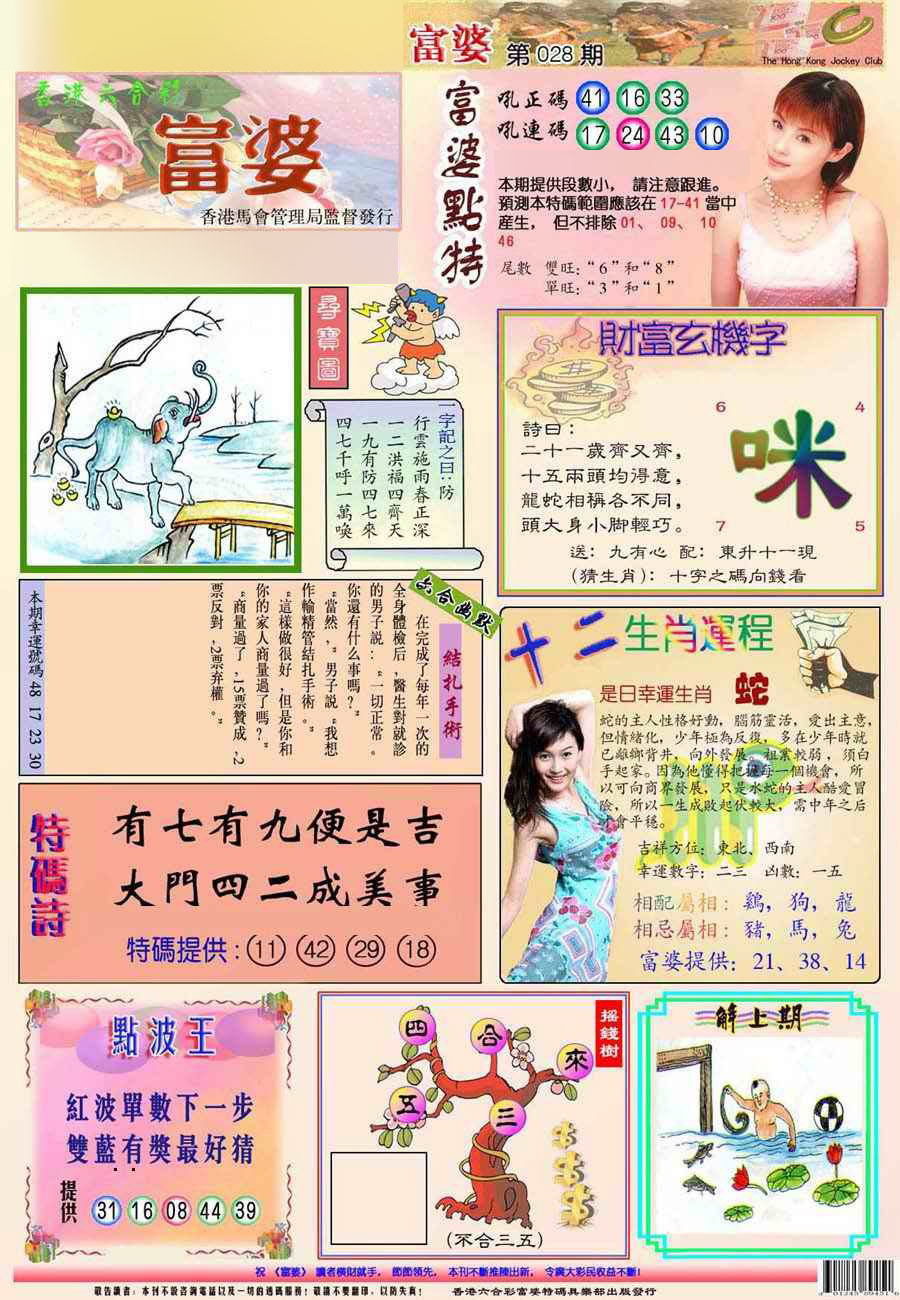 富婆 第028期
The Hong Kong Jockey Club
香港六合彩
富婆
香港馬會管理局監督發行
富婆點特
吼正碼 41 16 33
吼連碼 17 24 43 10
本期提供段數小， 請注意跟進。
預測本特碼範圍應該在17-41當中
産生， 但不排除01、 09、 10
46
尾數 雙旺:“6”和“8”
單旺:“3”和“1”
尋寶圖
一字記之曰:防
行雲施雨春正深
一二洪福四齊天
一九有防四七來
四七千呼一萬喚
財富玄機字
6 4
咪
7 5
詩曰:
二十一歲齊又齊，
十五兩頭均得意，
龍蛇相稱各不同，
頭大身小脚輕巧。
送: 九有心 配: 東升十一現
(猜生肖): 十字之碼向錢看
六合幽默
結扎手術
在完成了每年一次的
全身體檢后,醫生對就診
的男子説:“一切正常。
你還有什么事嗎?”
“當然,”男子説“我想
作輸精管結扎手術。”
“這樣做很好,但是你和
你的家人商量過了嗎?”
“商量過了,15票贊成,2
票反對,2票弃權。”
本期幸運號碼 48 17 23 30
十二生肖運程
是日幸運生肖 蛇
蛇的主人性格好動，腦筋靈活，愛出主意，
但情緒化，少年極為反復，多在少年時就
已離鄉背井，向外發展。祖業較弱，須白
手起家。因為他懂得把握每一個機會，所
以可向商界發展，只是水蛇的主人酷愛冒
險，所以一生成敗起伏較大，需中年之后
才會平穩。
吉祥方位: 東北、西南
幸運數字: 二三 凶數: 一五
相配屬相: 鷄，狗，龍
相忌屬相: 豬，馬，兔
富婆提供: 21、38、14
特碼詩
有七有九便是吉
大門四二成美事
特碼提供: 11 42 29 18
點波王
紅波單數下一步
雙藍有獎最好猜
提供 31 16 08 44 39
搖錢樹
四 合 來
五 三
(不合三五)
解上期
祝 《富婆》 讀者橫財就手， 節節領先， 本刊不斷推陳出新， 令廣大彩民收益不斷!
敬告讀者: 本刊不設咨詢電話以及一切的透碼服務! 敬請不要翻印，以防失真! 香港六合彩富婆特碼具樂部出版發行